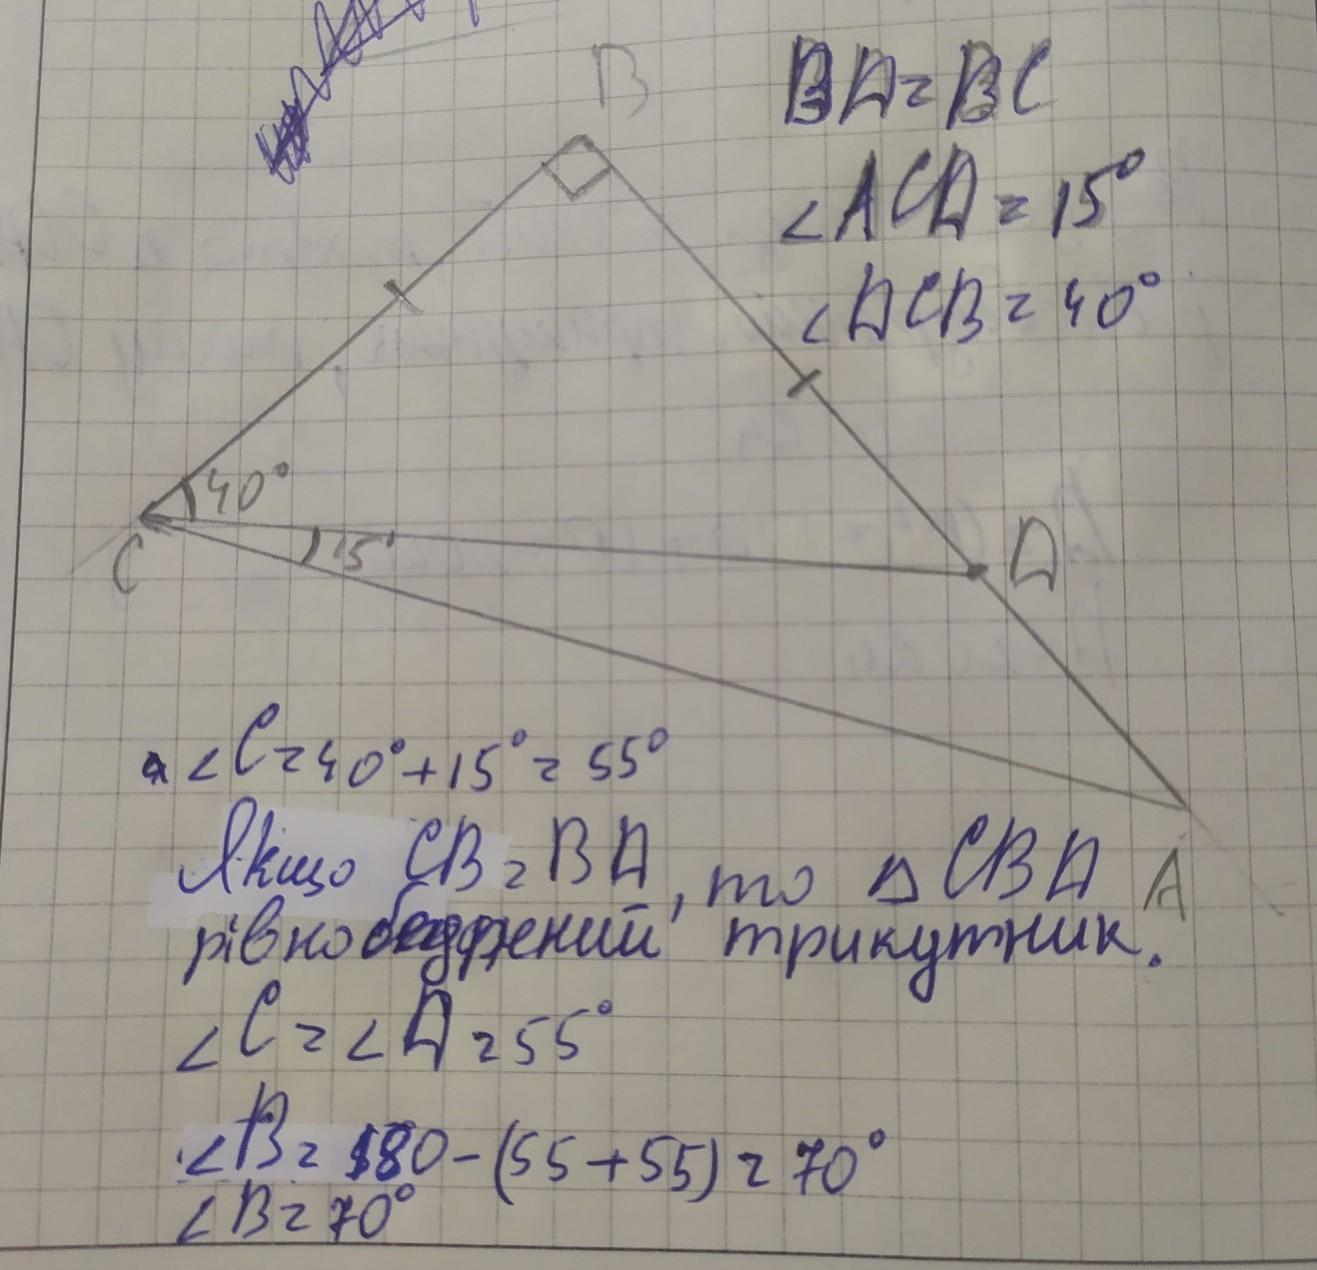 B
BD=BC
∠ACD=15°
∠DCB=40°
40°
C
15°
D
∠C=40°+15°=55°
Якщо CB=BD, то △CBD
A
рівнобедрений трикутник.
∠C=∠D=55°
∠B=180-(55+55)=70°
∠B=70°